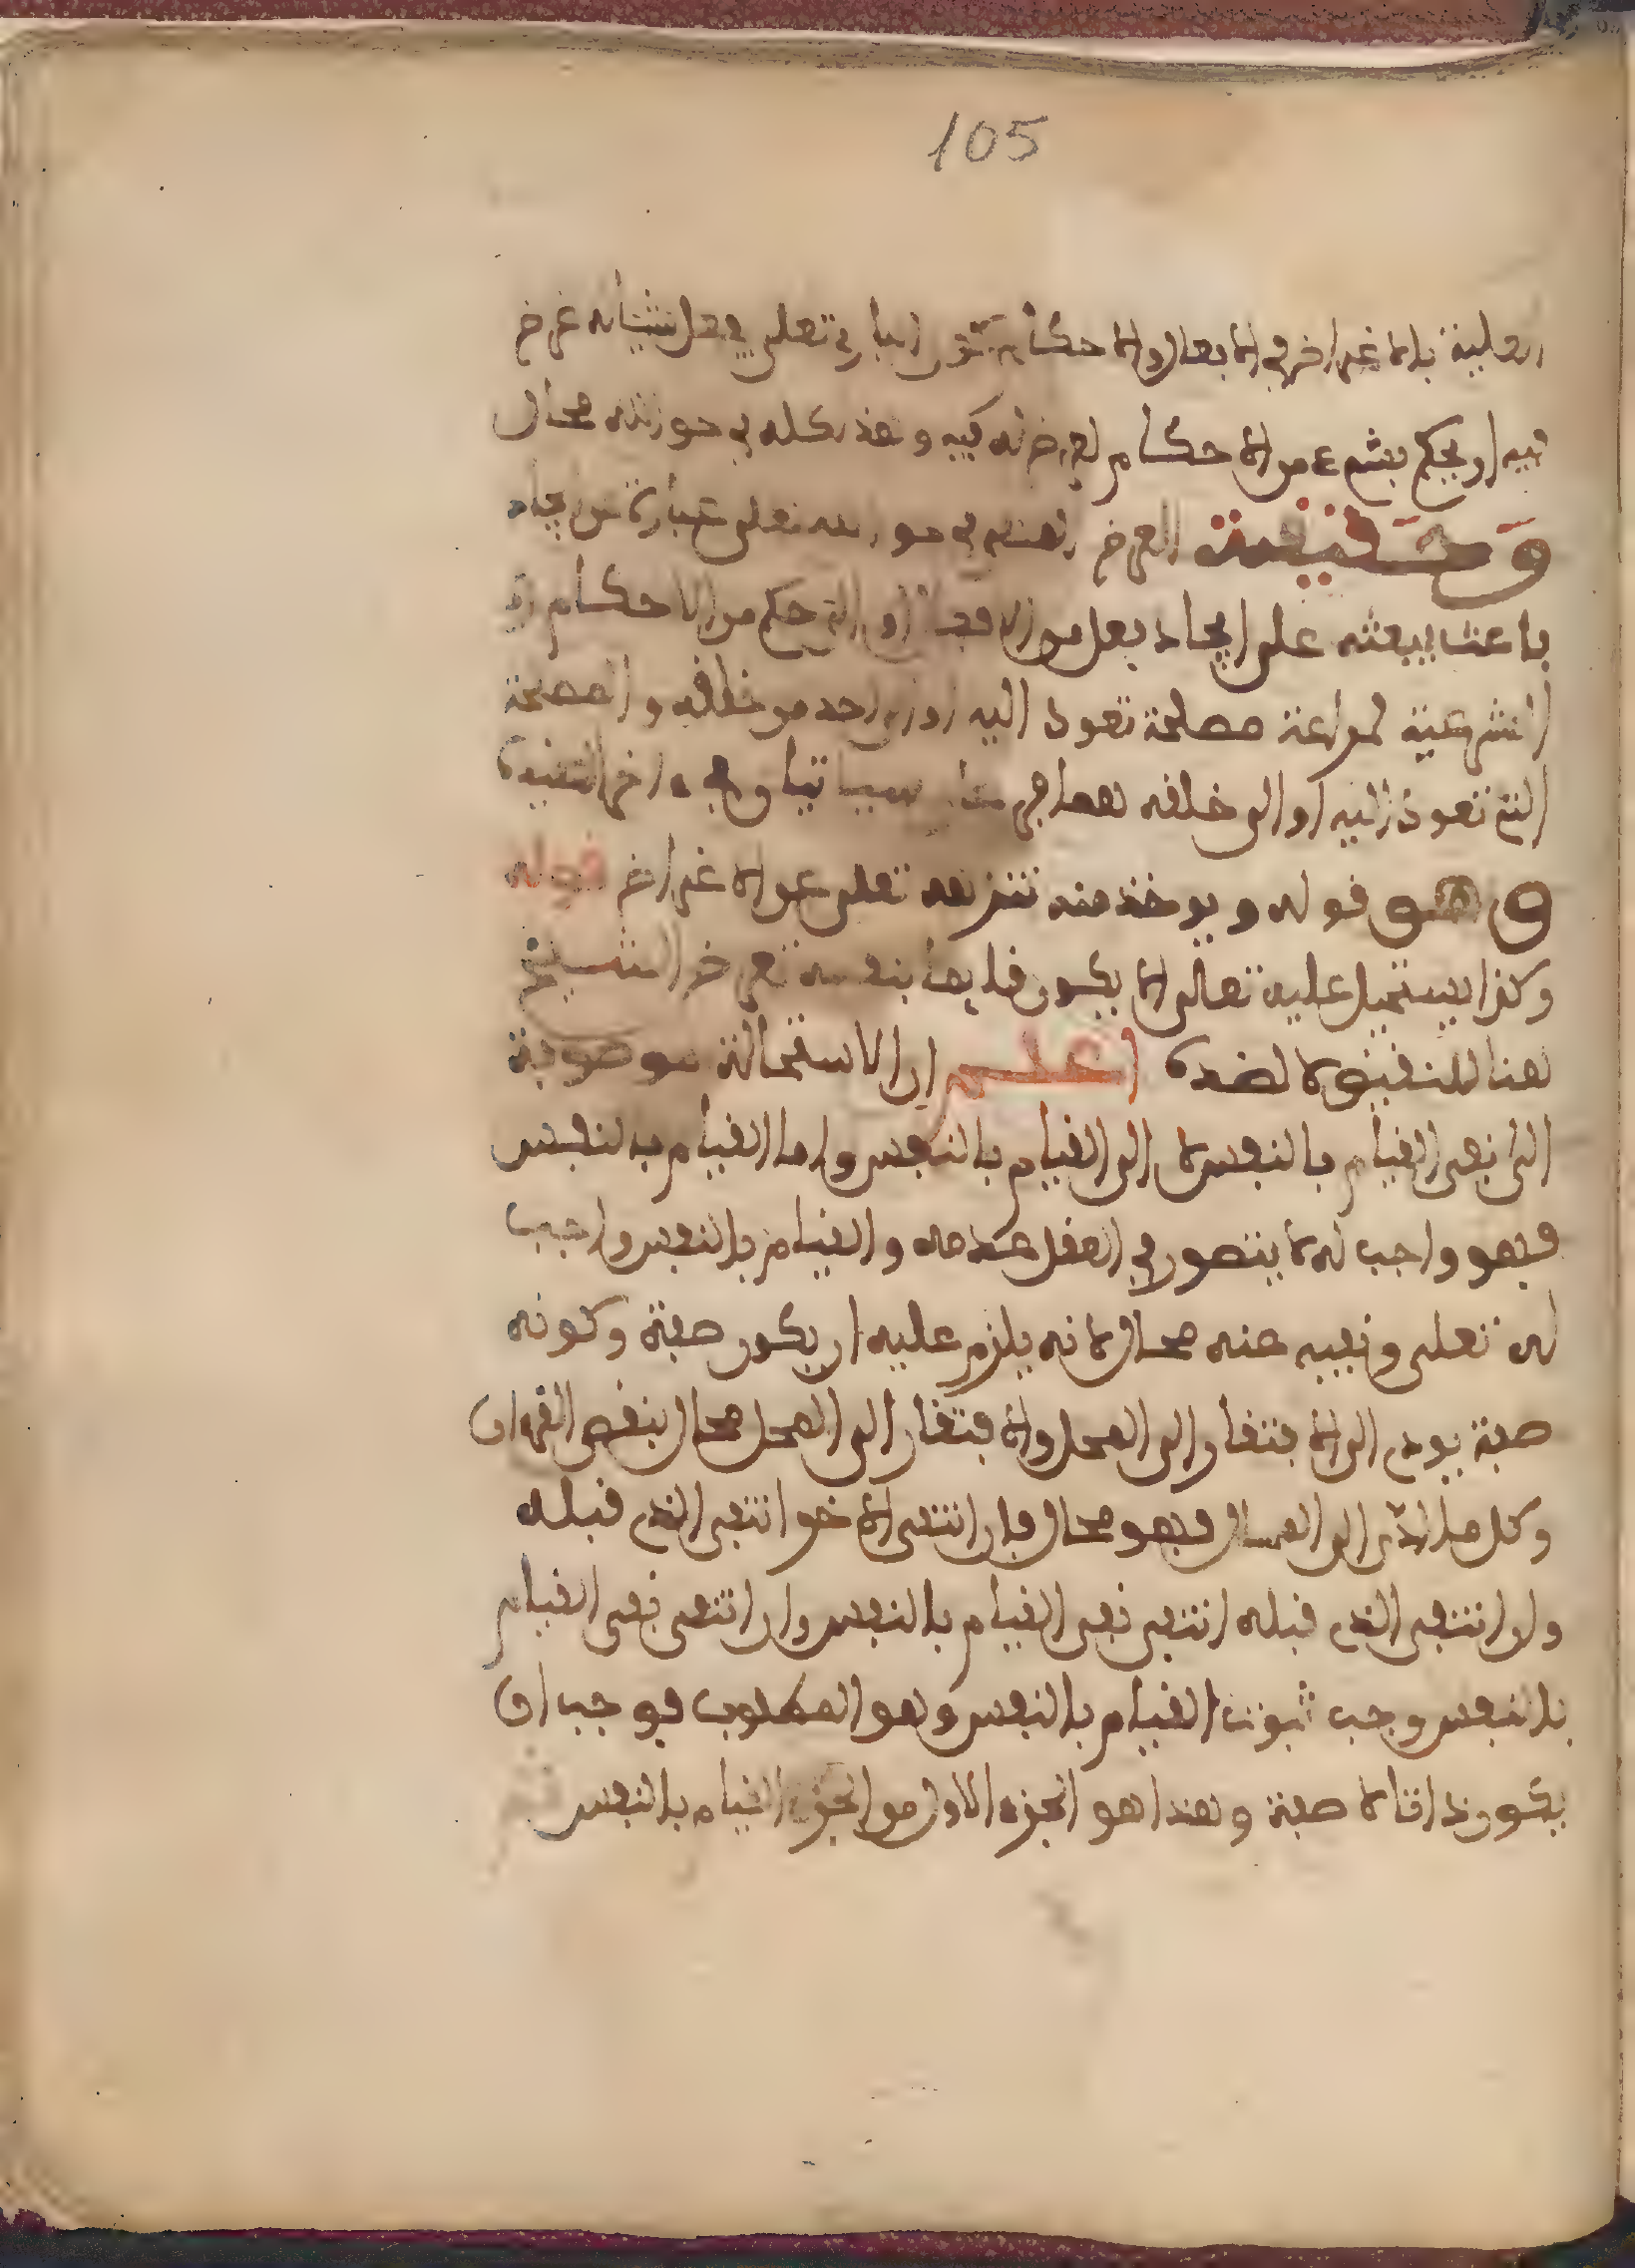 105
العلية بالاغراض في الافعال والاحكام يكون الباري تعلى يفعل شيئا له غرض
فيه او يحكم بشيء من الاحكام لغرض له فيه وهذا كله في حق الله محال
وحقيقة الغرض المنفي في حق الله تعلى عبارة عن ايجاد
باعث يبعثه على ايجاد فعل من الافعال او الى حكم من الاحكام
الشرعية لمراعة مصلحة تعود اليه او الى احد من خلقه والمصلحة
التي تعود اليه او الى خلقه هما سياتيان في ءاخر العقيدة
وهو قوله ويوخذ منه تنزهه تعلى عن الاغراض قوله
وكذا يستحيل عليه تعالى الا يكون قايما بنفسه تعرض الشيخ
هنا للنقيض لا لضده اعلم ان الاستحالة موصوفة
الى نفي القيام بالنفس لا الى القيام بالنفس واما القيام بالنفس
فهو واجب له لا يتصور في العقل عدمه والقيام بالنفس واجب
له تعلى ونفيه عنه محال لانه يلزم عليه ان يكون صفة وكونه
صفة يودي الى الافتقار الى المحل والافتقار الى المحل محال بنص القرءان
وكل ما ادى الى المحال فهو محال فان انتفى الاخر انتفى الذي قبله
وان انتفى الذي قبله انتفى نفي القيام بالنفس وان انتفى نفي القيام
بالنفس وجب ثبوت القيام بالنفس وهو المطلوب فوجب ان
يكون ذاتا لا صفة وهذا هو الجزء الاول من الجزء القيام بالنفس